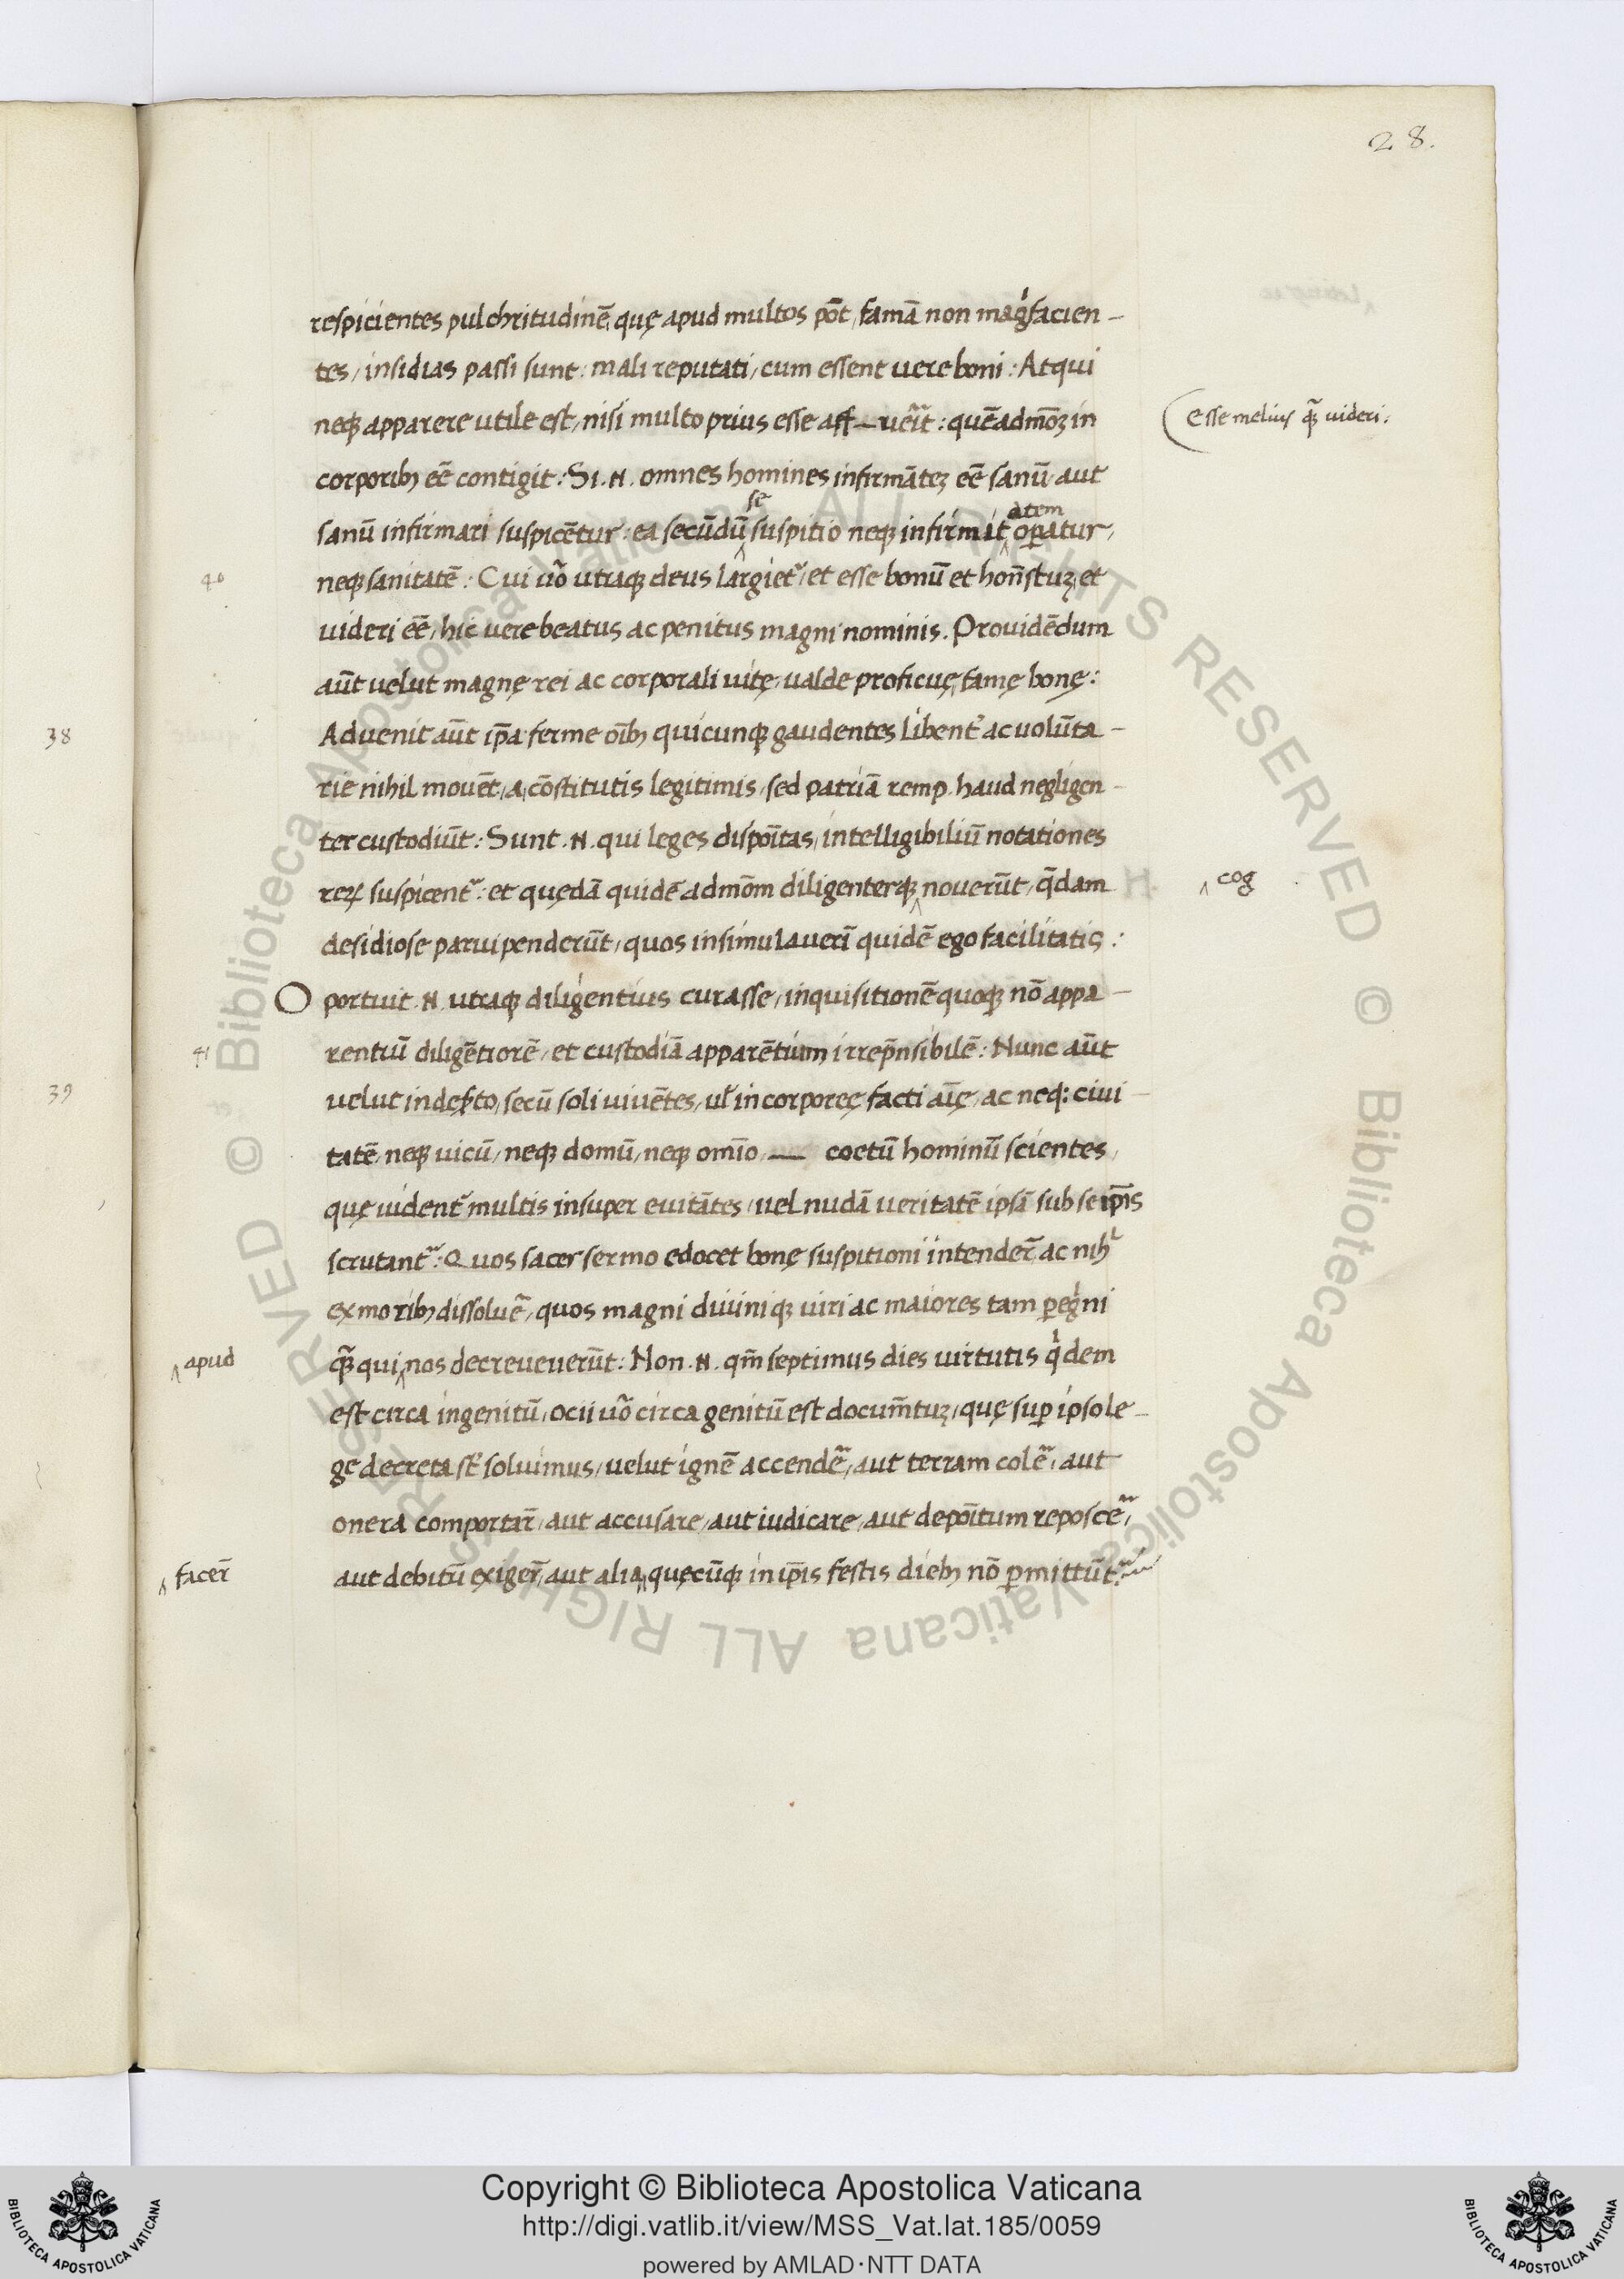 28.
respicientes pulchritudinē, quę apud multos pōt, famā non magͥfacien-
tes, insidias passi sunt: mali reputati, cum essent vere boni: Atqui
neqꝫ apparere utile est, nisi multo prius esse aff—
corporibꝫ eē contigit: Si .N. omnes homines infirmāteꝫ eē sanū, aut
sanū infirmari suspicētur: ea secūdū se suspitio neqꝫ infirmitatem oꝑatur,
neqꝫ sanitatē: Cui u͞o utraqꝫ deus largiet᷑, et esse bonū et hon̄stuꝫ, et
uideri eē, hic vere beatus ac penitus magni nominis. Prouidēdum
aūt velut magnę rei ac corporali uitę, ualde proficuę, famę bonę:
Aduenit aūt ip̄a ferme oībꝫ quicunqꝫ gaudentes libent᷑ ac volūta-
rie nihil mouēt, a cōstitutis legitimis, sed patriā remp. haud negligen-
ter custodiūt: Sunt .N. qui leges dispoītas, intelligibiliū notationes
reꝝ suspicent᷑: et quędā quidē admōm diligenterqꝫ nouerūt, q̄dam
desidiose parvipenderūt, quos insimulaueri᷑ quidē ego facilitatis:
Oportuit .N. utraqꝫ diligentius curasse, inquisitionē quoqꝫ nō appa-
rentiū diligētiorē, et custodiā apparētium irrep̄nsibilē: Nunc aūt
velut in des̄to, secū soli viuētes, ul̛ incorporeę facti aīę, ac neq: ciui-
tatē, neqꝫ vicū, neqꝫ domū, neqꝫ omīo — coetū hominū scientes,
quę uident᷑ multis insuper euitātes, vel nudā ueritatē ipsā sub se ip̄is
scrutant᷑: Quos sacer sermo edocet bonę suspitioni intender̄ ac nihͥl
ex moribꝫ dissoluē᷑, quos magni divini qꝫ uiri ac maiores tam ꝑegͥni
qꝫ̄ qui nos decreueuerūt: Non .N. qm̄ septimus dies virtutis qͥdem
est circa ingenitū, ocii u͞o circa genitū est docum̄tuꝫ, quę suꝑ ipso le-
ge decreta st̄ soluimus, uelut ignē accendē᷑, aut terram colē᷑, aut
onera comportar̄, aut accusare, aut iudicare, aut depoītum reposcē᷑,
aut debitū exiger̄, aut alia, quęcūqꝫ in ip̄is festis diebꝫ nō ꝑmittūt᷑
Esse melius qꝫ̄ uideri:
cog
apud
facer̄
40
41
38
39
Copyright © Biblioteca Apostolica Vaticana
http://digi.vatlib.it/view/MSS_Vat.lat.185/0059
powered by AMLAD·NTT DATA
BIBLIOTECA APOSTOLICA VATICANA
BIBLIOTECA APOSTOLICA VATICANA
© Biblioteca Apostolica Vaticana ALL RIGHTS RESERVED © Biblioteca Apostolica Vaticana ALL RIGHTS RESERVED